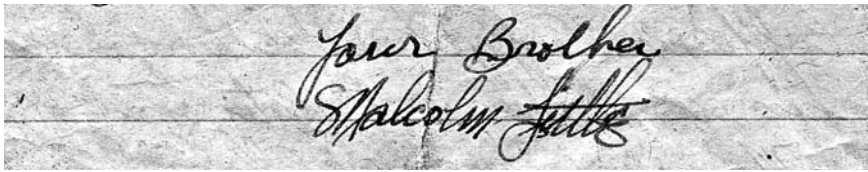 Your Brother
Malcolm Little